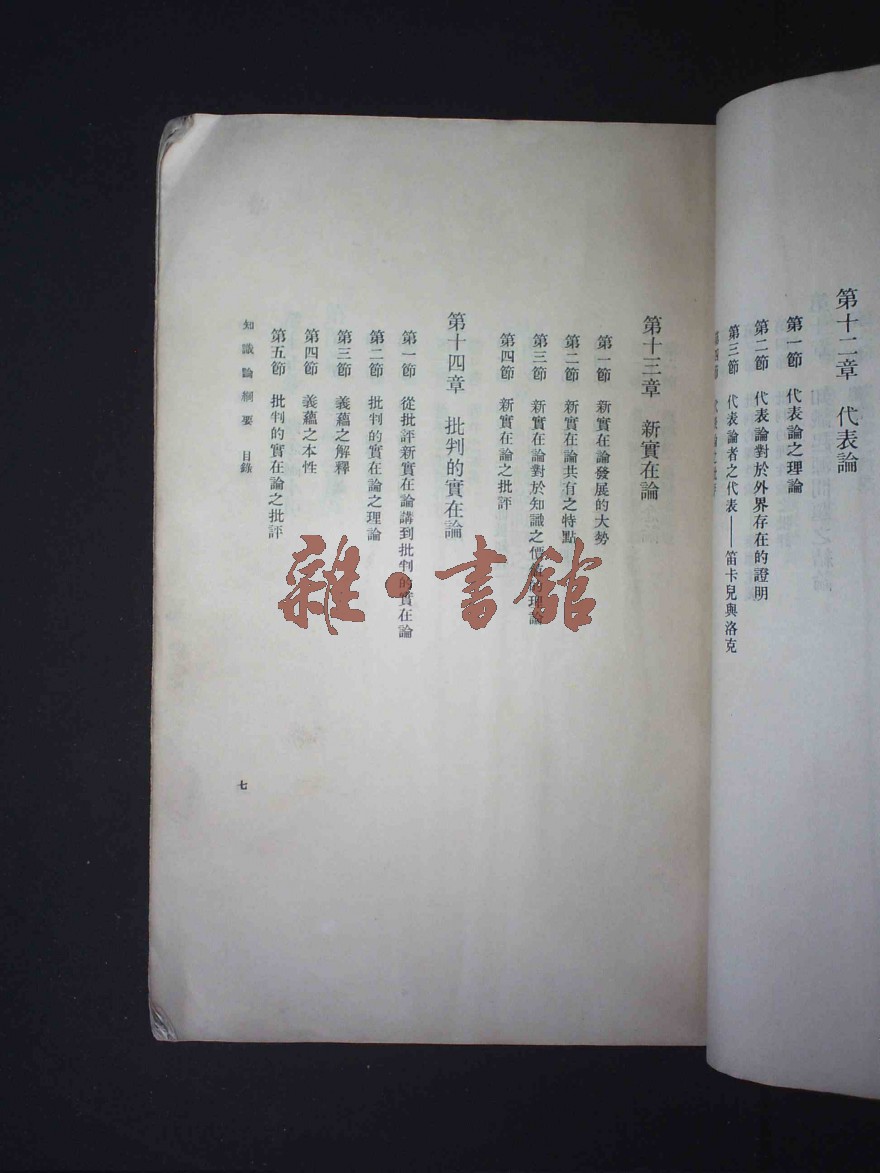 第十二章　代表論
第一節　代表論之理論
第二節　代表論對於外界存在的證明
第三節　代表論者之代表——笛卡兒與洛克
第十三章　新實在論
第一節　新實在論發展的大勢
第二節　新實在論共有之特點
第三節　新實在論對於知識之價值的理論
第四節　新實在論之批評
第十四章　批判的實在論
第一節　從批評新實在論講到批判的實在論
第二節　批判的實在論之理論
第三節　義蘊之解釋
第四節　義蘊之本性
第五節　批判的實在論之批評
知識論綱要　目錄
七
雜·書館